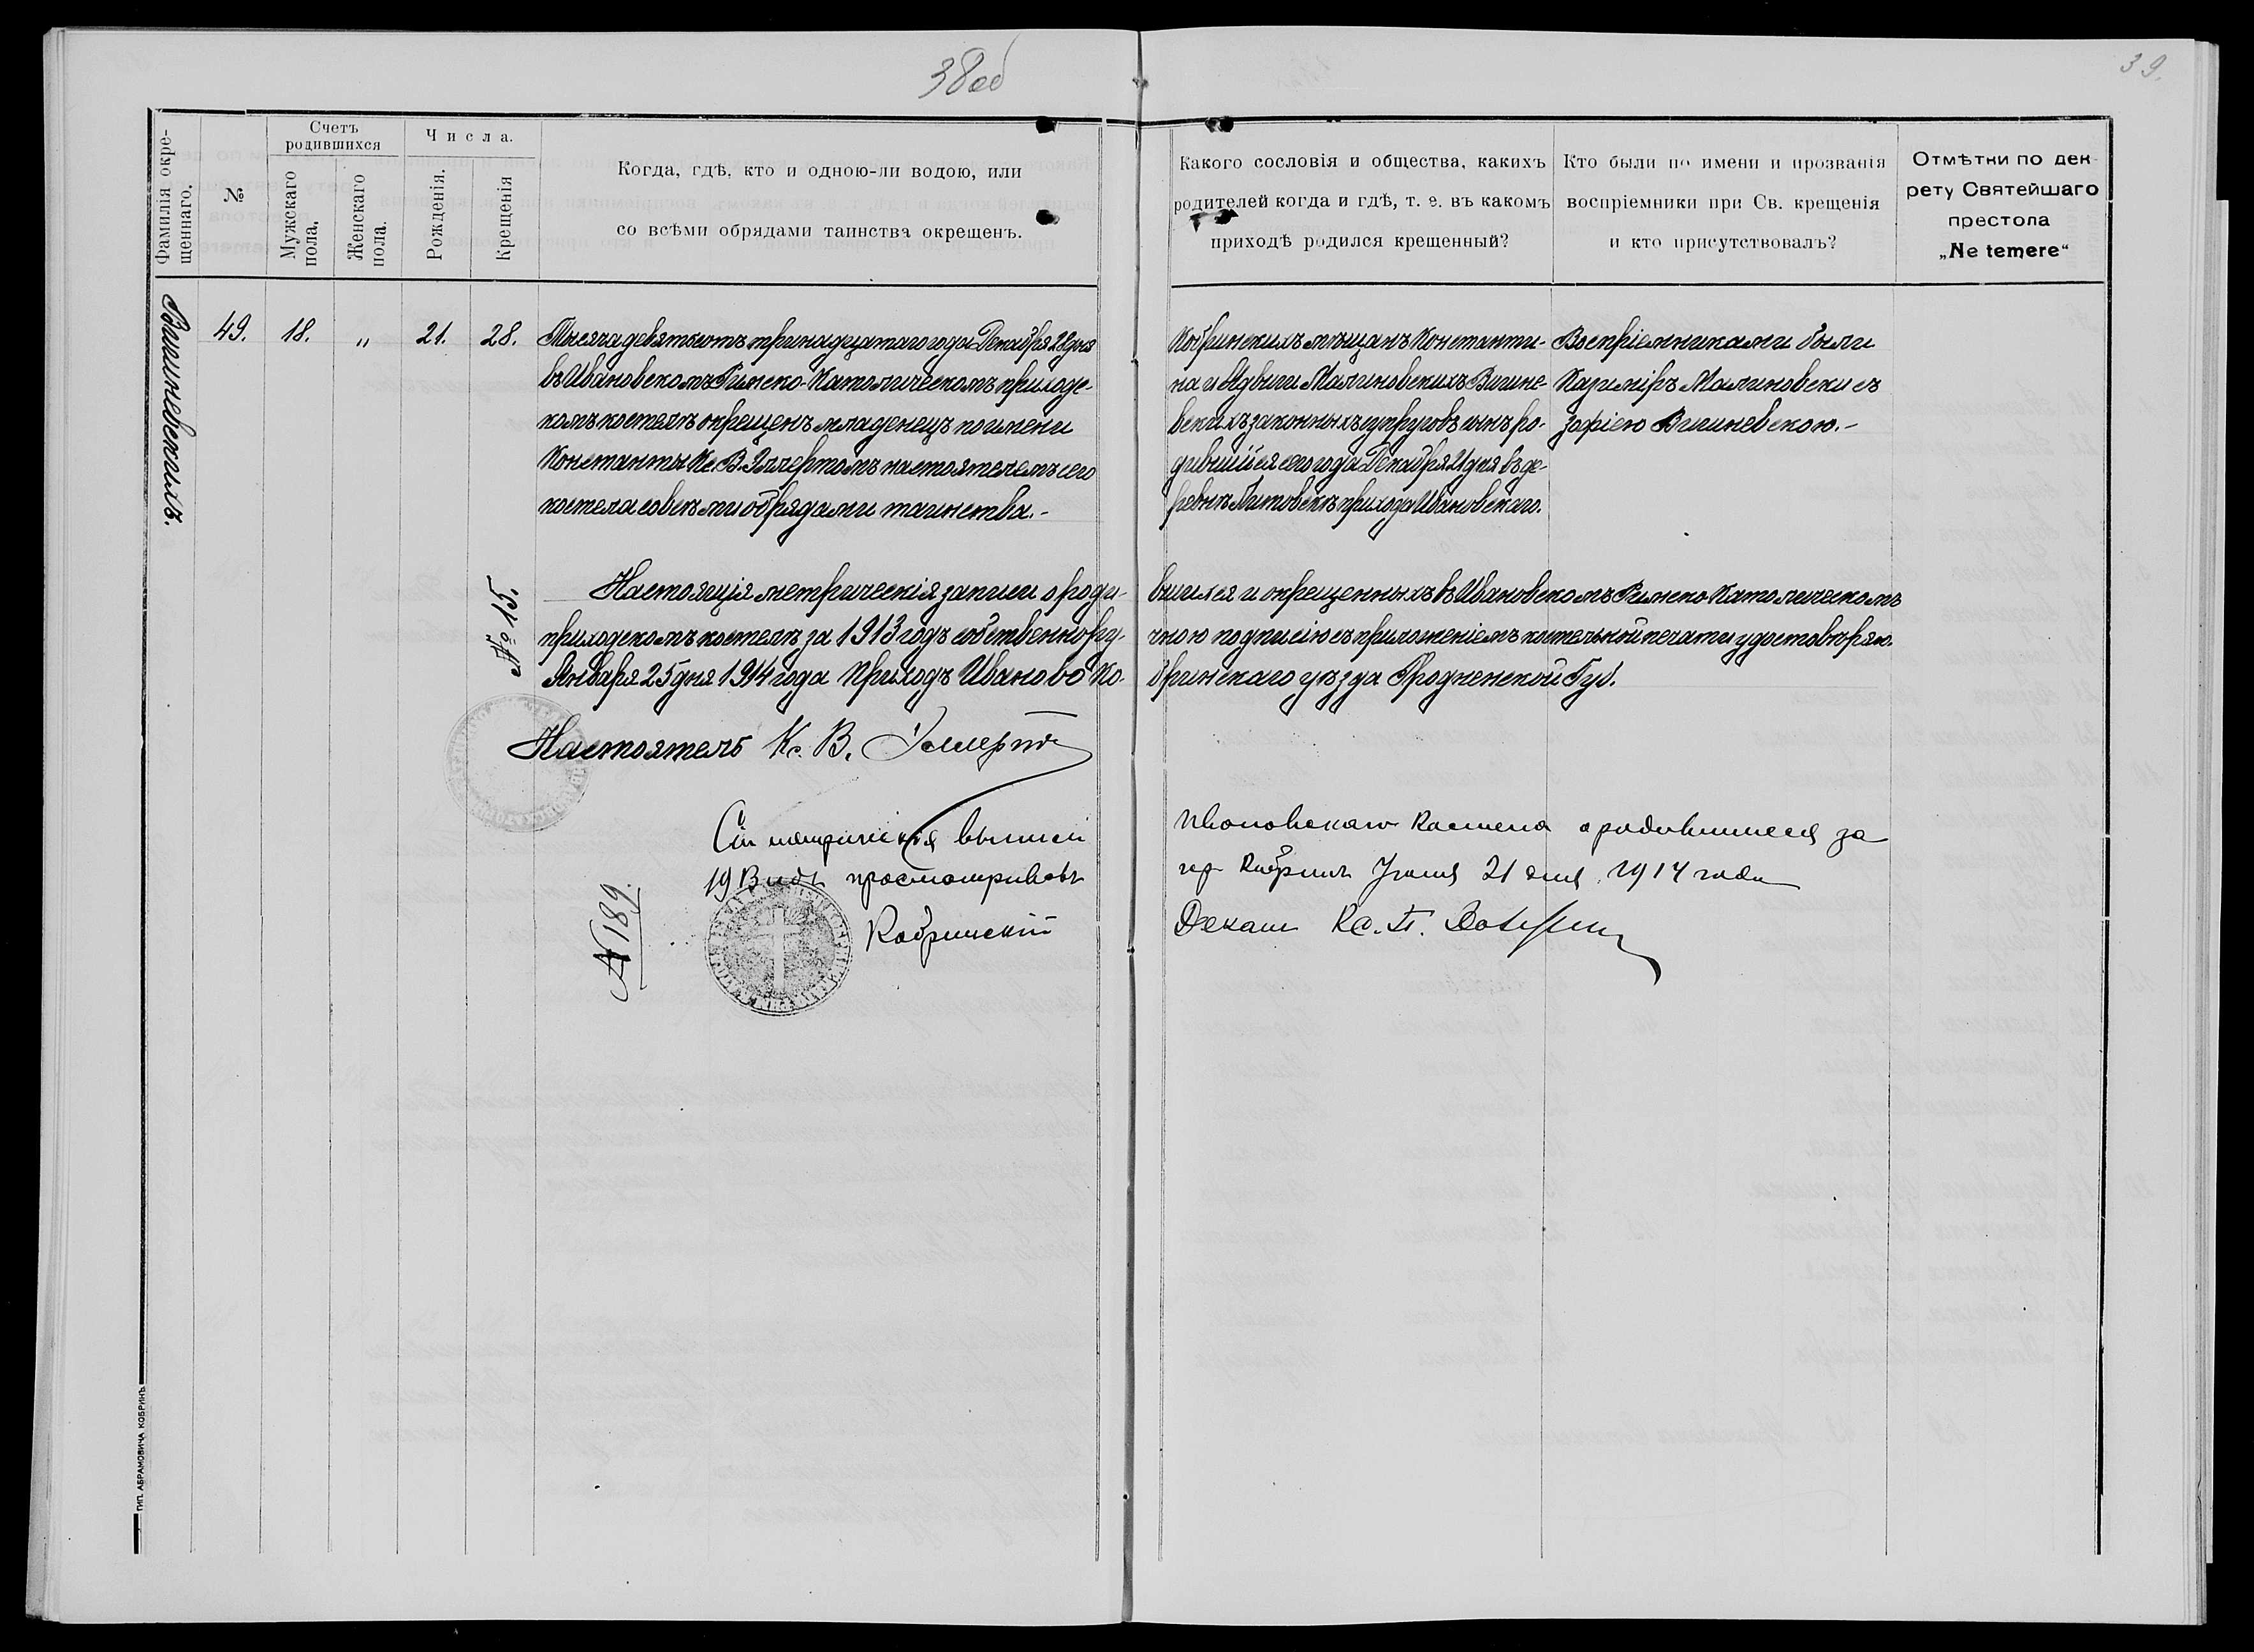 38об
39.
Фамилія окре-
щеннаго.
№
Счетъ
родившихся
Мужскаго
пола.
Женскаго
пола.
Числа.
Рожденія.
Крещенія
Когда, гдѣ, кто и одною-ли водою, или
со всѣми обрядами таинства окрещенъ.
Какого сословія и общества, какихъ
родителей когда и гдѣ, т. е. въ какомъ
приходѣ родился крещенный?
Кто были по имени и прозванія
воспріемники при Св. крещенія
и кто присутствовалъ?
Отмѣтки по дек-
рету Святейшаго
престола
„Ne temere“
Вишневскихъ.
49.
18.
„
21.
28.
Тысяча девятьсотъ тринадцатаго года Декабря 28 дня
въ Ивановскомъ Римско-Католическомъ приходс-
комъ костелѣ окрещенъ младенецъ по имени
Константы Кс. В. Эллертомъ настоятелемъ сего
костела со всѣми обрядами таинства.-
Кобринскихъ мѣщанъ Константи-
на и Ядвиги Малиновскихъ Вишне-
вскихъ законныхъ супруговъ сынъ ро-
дившійся сего года Декабря 21 дня въ де-
ревнѣ Литовскъ прихода Ивановскаго.
Воспріемниками были
Казиміръ Малиновски съ
Зофіею Вишневскою.-
№ 15.
Настоящія метрическія записи о роди-
вшихся и окрещенныхъ въ Ивановскомъ Римско-Католическомъ
приходскомъ костелѣ за 1913 годъ собственнору-
чною подписью съ приложеніемъ костельной печати удостовѣряю.
Января 25 дня 1914 года Приходъ Иваново Ко-
бринскаго уѣзда Гродненской Губ.
Настоятель Кс. В. Эллертъ
Сіи метрическія выписи
Ивановскаго Костела о родившихся за
1913 годъ просматривалъ
гр. Кобринъ Іюня 21 дня 1914 года
№ 189.
Кобринскій
Деканъ Кс. П.
ТИП. АБРАМОВИЧА КОБРИНЪ